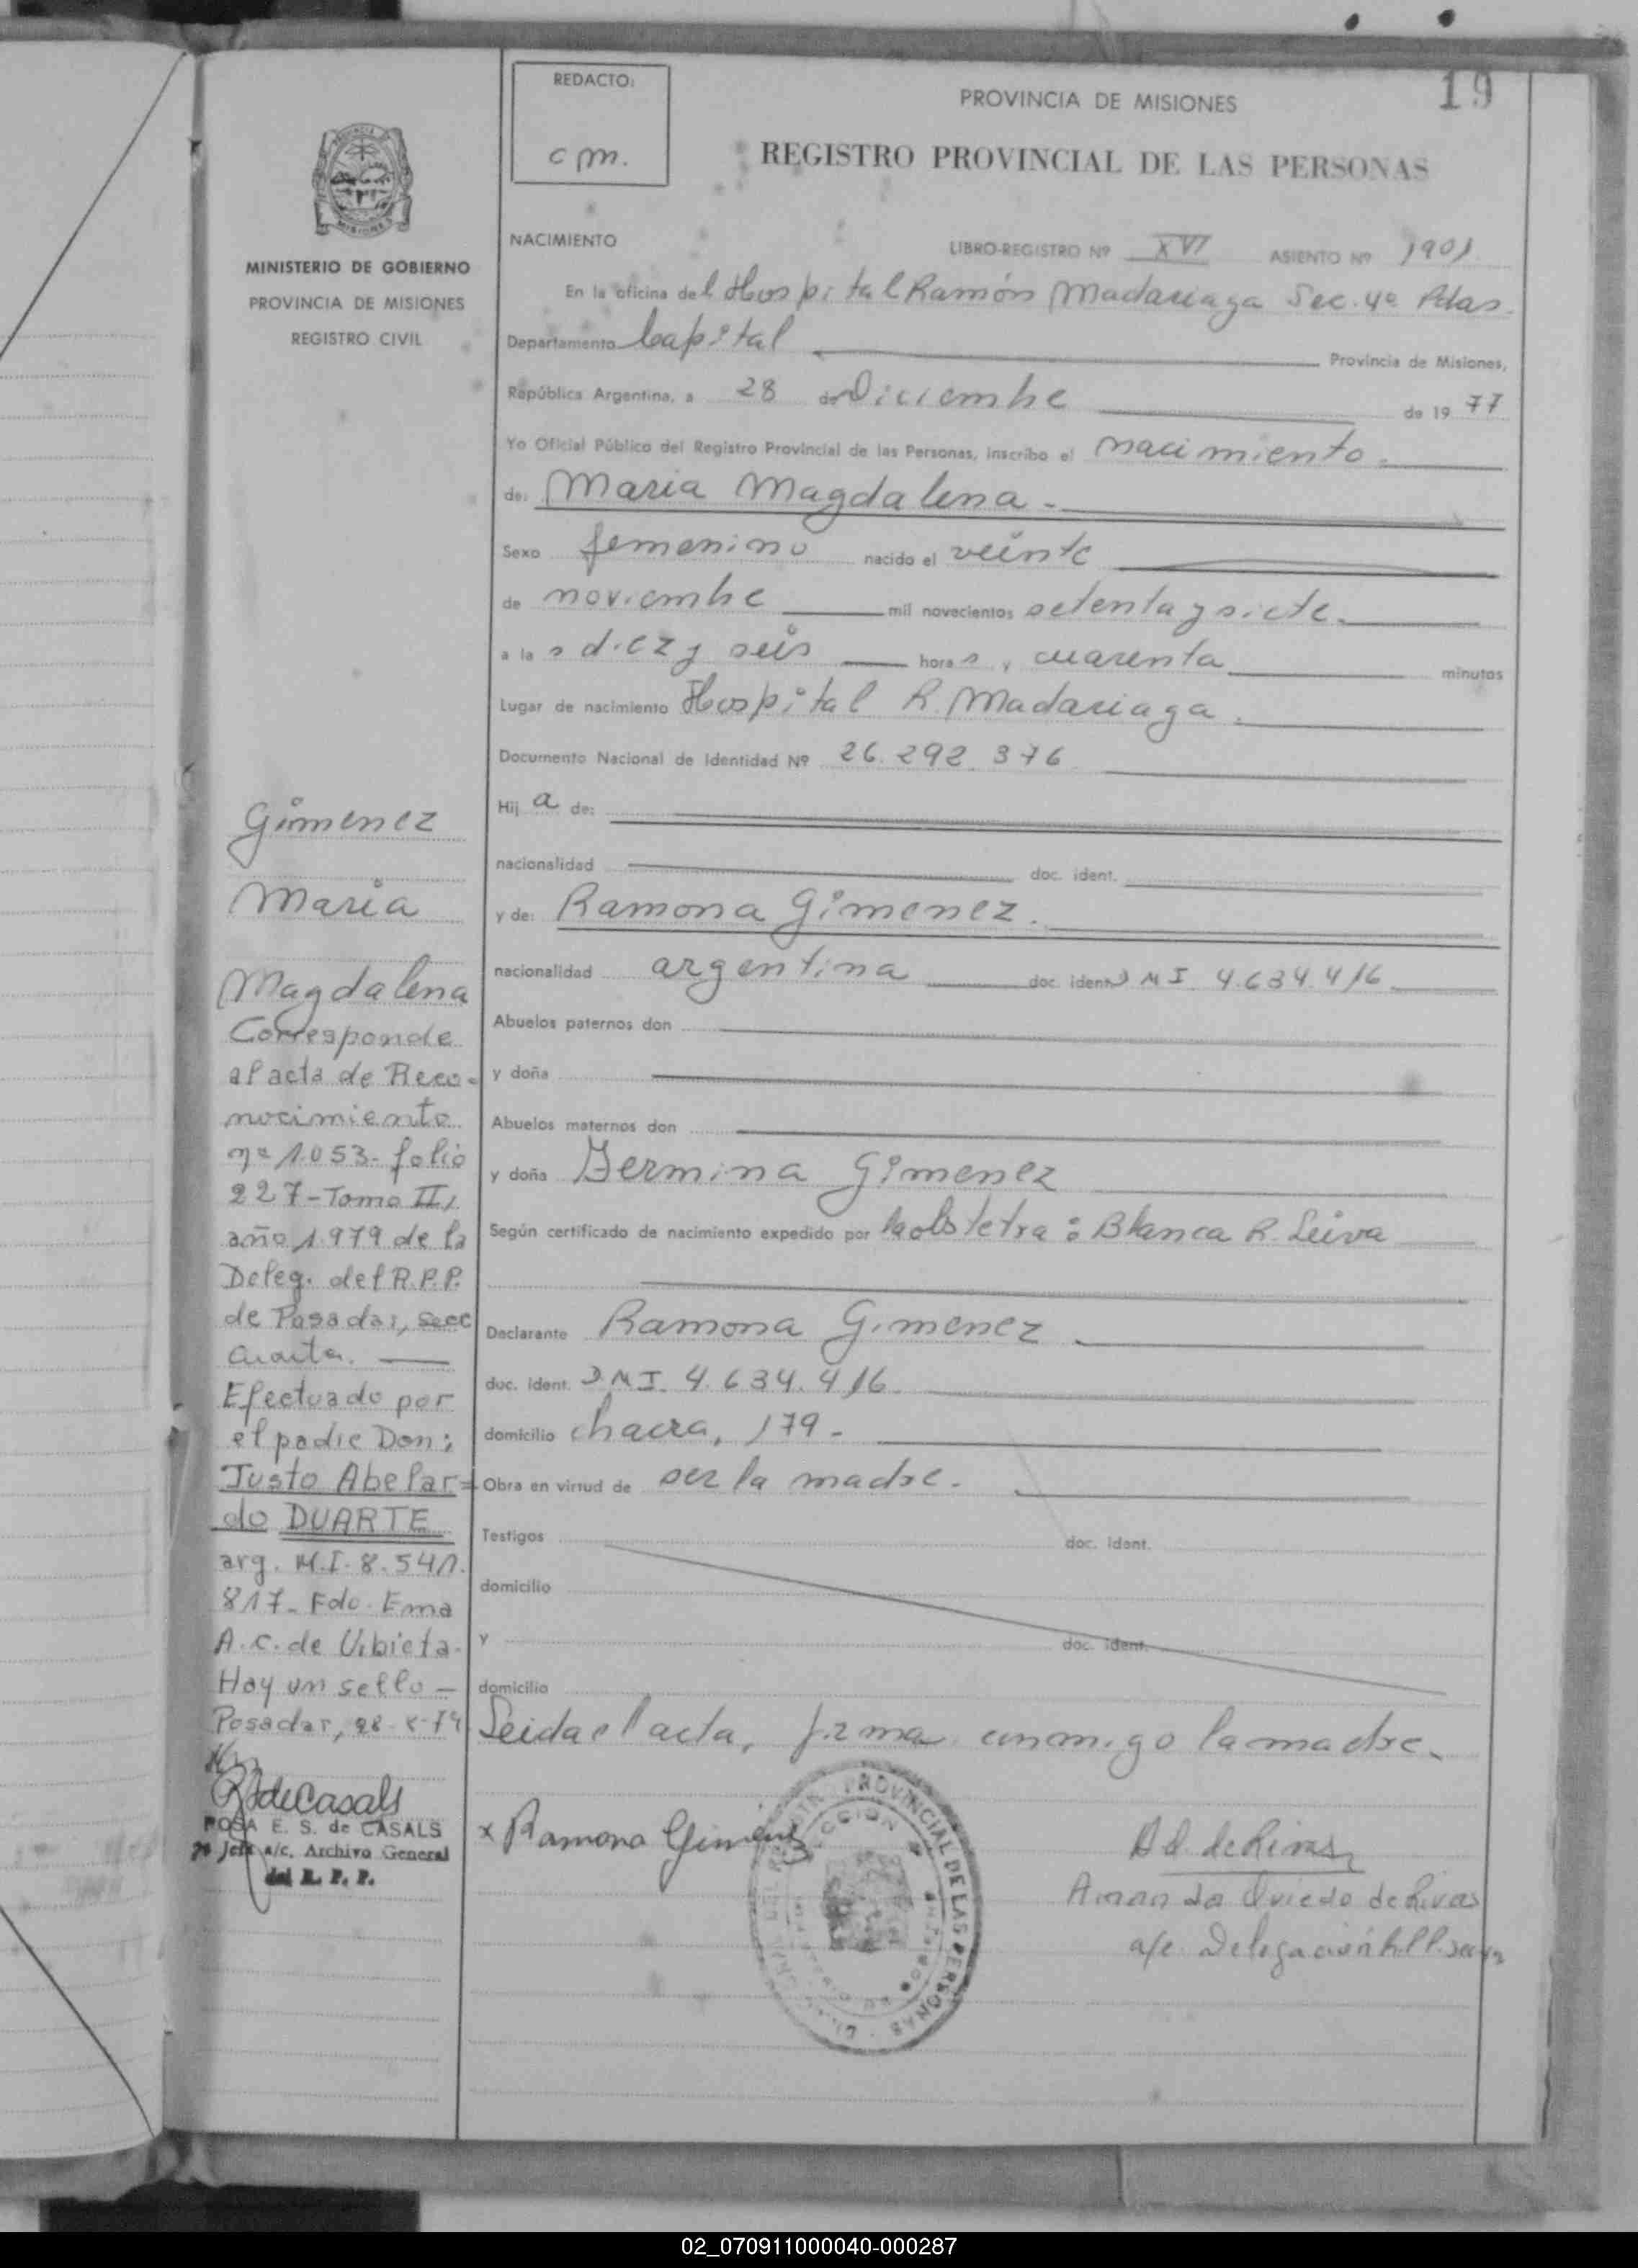 19
REDACTO:
c m.
PROVINCIA DE MISIONES
REGISTRO PROVINCIAL DE LAS PERSONAS
MINISTERIO DE GOBIERNO
PROVINCIA DE MISIONES
REGISTRO CIVIL
NACIMIENTO
LIBRO-REGISTRO Nº XVI ASIENTO Nº 1901
En la oficina del Hospital Ramón Madariaga Sec. 4ª Pdas.
Departamento Capital Provincia de Misiones,
República Argentina, a 28 de Diciembre de 19 77
Yo Oficial Público del Registro Provincial de las Personas, inscribo el nacimiento.
de: Maria Magdalena.
Sexo femenino nacido el veinte
de noviembre mil novecientos setenta y siete.
a la s diez y seis hora s y cuarenta minutos
Lugar de nacimiento Hospital R. Madariaga.
Documento Nacional de Identidad Nº 26.292.376
Hij a de:
nacionalidad doc. ident.
y de: Ramona Gimenez.
nacionalidad argentina doc. ident D N I 4.634.416
Abuelos paternos don
y doña
Abuelos maternos don
y doña Germina Gimenez
Según certificado de nacimiento expedido por la obstetra: Blanca R. Leiva
Declarante Ramona Gimenez
doc. ident. D.N I. 4.634.416
domicilio chacra, 179-
Obra en virtud de ser la madre.
Testigos doc. ident.
domicilio
y doc. ident.
domicilio
Leida el acta, firma conmigo la madre.
x Ramona Gimenez
PROVINCIAL DE LAS PERSONAS
A O. de Rivas
Amanda Oviedo de Rivas
a/c Delegación R.P.P.
Gimenez
Maria
Magdalena
Corresponde
al acta de Reco-
nocimiento
nº 1.053- folio
227-Tomo II,
año 1.979 de la
Deleg. del R.P.P.
de Posadas, secc
cuarta.
Efectuado por
el padre Don:
Justo Abelar=
do DUARTE
arg. M.I. 8.541.
817- Fdo. Ema
A.C. de Urbieta.
Hay un sello-
Posadas, 28-X-79
R S de Casals
ROSA E. S. de CASALS
Jefe a/c. Archivo General
del R. P. P.
02_070911000040-000287